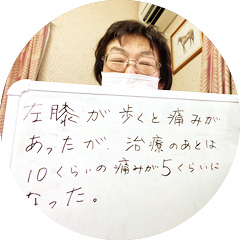 左膝が歩くと痛みが
あったが、治療のあとは
10くらいの痛みが5くらいに
なった。